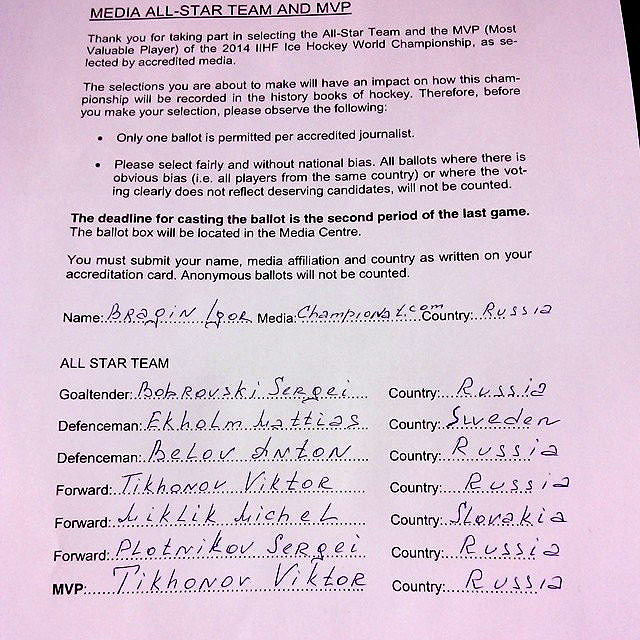 MEDIA ALL-STAR TEAM AND MVP
Thank you for taking part in selecting the All-Star Team and the MVP (Most
Valuable Player) of the 2014 IIHF Ice Hockey World Championship, as se-
lected by accredited media.
The selections you are about to make will have an impact on how this cham-
pionship will be recorded in the history books of hockey. Therefore, before
you make your selection, please observe the following:
• Only one ballot is permitted per accredited journalist.
• Please select fairly and without national bias. All ballots where there is
obvious bias (i.e. all players from the same country) or where the vot-
ing clearly does not reflect deserving candidates, will not be counted.
The deadline for casting the ballot is the second period of the last game.
The ballot box will be located in the Media Centre.
You must submit your name, media affiliation and country as written on your
accreditation card. Anonymous ballots will not be counted.
Name: Bragin Igor Media: Championat.com Country: Russia
ALL STAR TEAM
Goaltender: Bobrovski Sergei Country: Russia
Defenceman: Ekholm Mattias Country: Sweden
Defenceman: Belov Anton Country: Russia
Forward: Tikhonov Viktor Country: Russia
Forward: Miklik Michel Country: Slovakia
Forward: Plotnikov Sergei Country: Russia
MVP: Tikhonov Viktor Country: Russia